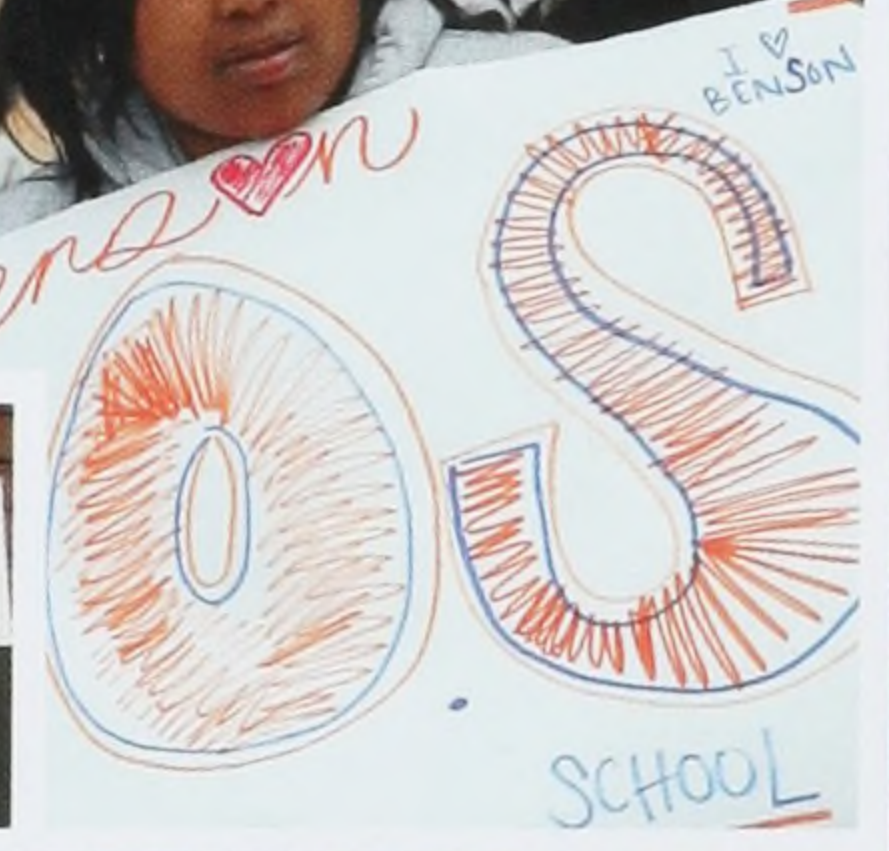 I ♡
BENSON
ens♥n
O.S
SCHOOL